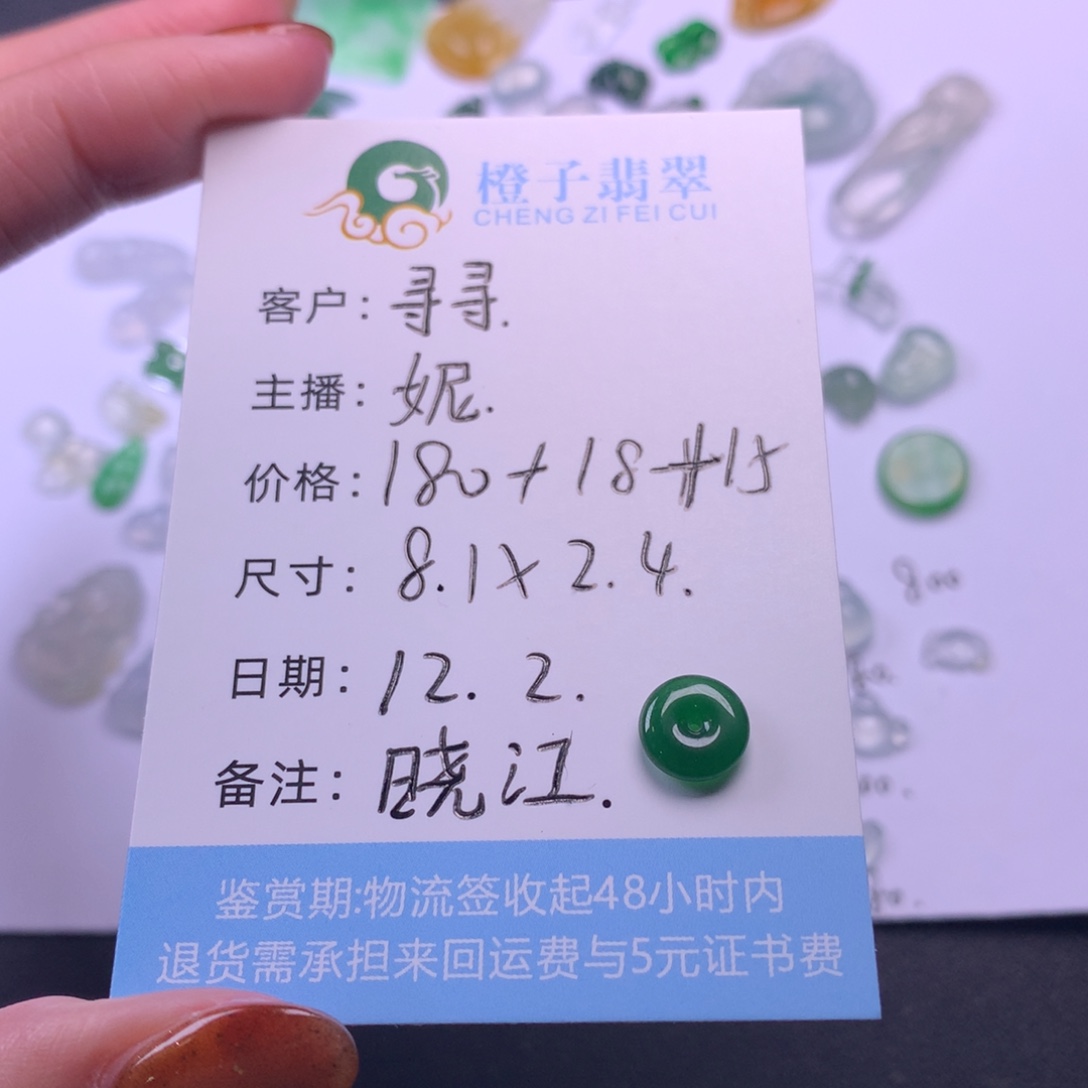 橙子翡翠
CHENG ZI FEI CUI
客户：寻寻.
主播：妮.
价格：180+18+15
尺寸：8.1×2.4.
日期：12.2.
备注：晓江.
鉴赏期:物流签收起48小时内
退货需承担来回运费与5元证书费
800